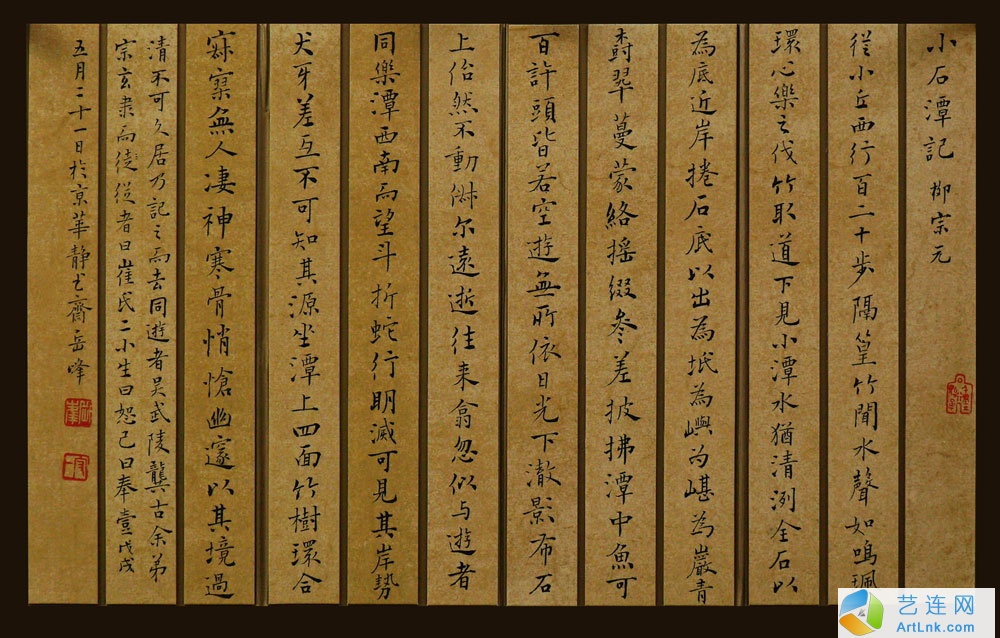 小石潭記 柳宗元
從小丘西行百二十步隔篁竹聞水聲如鳴珮
環心樂之伐竹取道下見小潭水猶清洌全石以
為底近岸捲石底以出為坻為嶼为嵁為巖青
樹翠蔓蒙絡搖綴參差披拂潭中魚可
百許頭皆若空遊無所依日光下澈影布石
上佁然不動俶尔遠逝往来翕忽似与遊者
同樂潭西南而望斗折蛇行明滅可見其岸勢
犬牙差互不可知其源坐潭上四面竹樹環合
寂寥無人凄神寒骨悄愴幽邃以其境過
清不可久居乃記之而去同遊者吴武陵龔古余弟
宗玄隶而徒從者曰崔氏二小生曰恕己曰奉壹戊戌
五月二十一日於京華靜齋岳峰
艺连网
ArtLnk.com